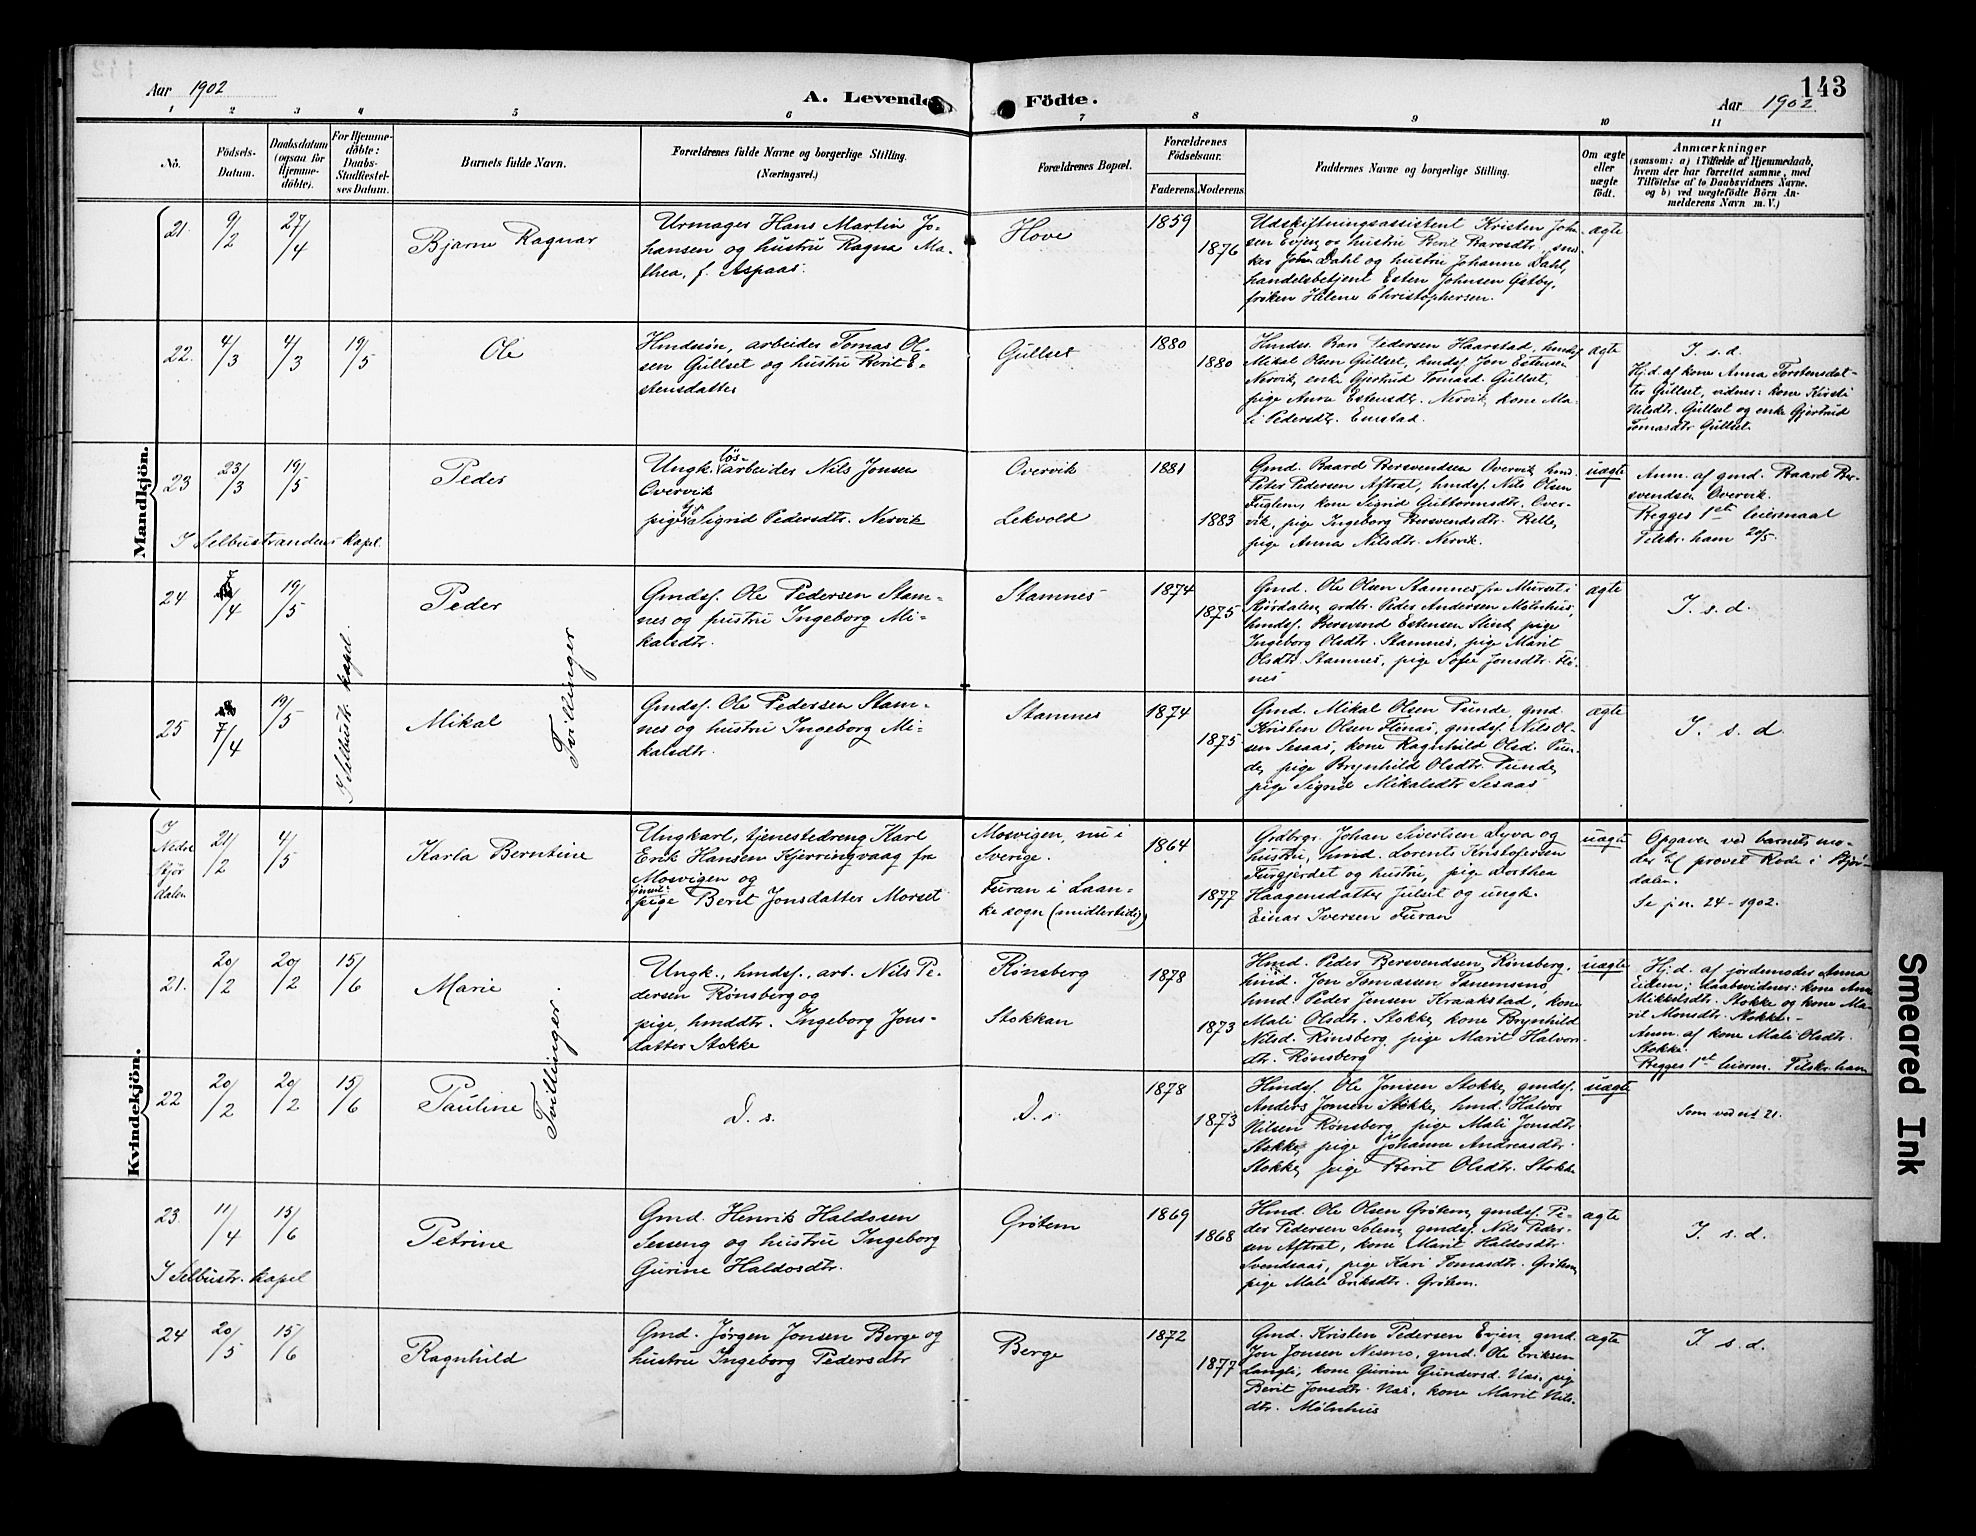 143
Aar 1902
A. Levende Födte.
Aar 1902
1 2 3 4 5 6 7 8 9 10 11
No.
Födsels-
Datum.
Daabsdatum
(ogsaa for
Hjemme-
döbte).
For Hjemme-
döbte:
Daabs-
Stadfæstel-
ses Datum.
Barnets fulde Navn.
Forældrenes fulde Navne og borgerlige Stilling.
(Næringsvei.)
Forældrenes Bopæl.
Forældrenes
Födselsaar.
Faderens.
Moderens.
Faddernes Navne og borgerlige Stilling.
Om ægte
eller
uægte
født.
Anmærkninger
(saasom: a) i Tilfælde af Hjemmedaab,
hvem der har forrettet samme, med
Tilföielse af to Daabsvidners Navne,
og b) ved uægtefödte Börn An-
melderens Navn m. V.)
Mandkjön.
21.
9/2
27/4
Bjarne Ragnar
Urmager Hans Martin Jo-
hansen og hustru Ragna Ma-
thea, f. Aspaas.
Hove
1859
1876
Udskiftningsassistent Kristen John-
sen Evjen og hustru Berit Baarsdtr., sne-
ker John Dahl og hustru Johanne Dahl,
handelsbetjent Esten Johnsen Østby,
frøken Helene Christophersen.
ægte
22.
4/3
4/3
19/5
Ole
Hmdssøn, arbeider Tomas Ol-
sen Gullset og hustru Berit E-
stensdatter
Gullset
1880
1880
Hmdsf. Pedersen Haarstad, hmdsf.
Mikal Olsen Gullset, hmdsf. Jon Estensen
Nervik, enke Gjertrud Tomasd. Gullset,
pige Anna Estensdtr. Nervik, kone Ma-
li Pedersdtr. Emstad.
ægte
I. s. d.
Hj.d. af kone Anna Torstensdat-
ter Gullset, vidner: kone Kirsti
Nilsdtr. Gullset og enke Gjertrud
Tomasdtr. Gullset.
23
23/3
19/5
Peder
Ungk. løs-arbeider Nils Jonsen
Overvik
og
pige Sigrid Pedersdtr. Nervik
I Selbustrandens kapel.
Overvik
Lekvold
1881
1883
Gmd. Baard Bersvendsen Overvik, hmd.
Peter Pedersen Aftrat, hmdsf. Nils Olsen
Fuglem, kone Sigrid Guttormsdtr. Over-
vik, pige Ingeborg Bersvendsdtr. Kelle,
pige Anna Nilsdtr. Nervik.
uægte
Anm. af gmd. Baard Ber-
svendsen Overvik.
Begges 1ste leiermaal
Tilskr. ham 20/5.
24
7/4
19/5
Peder
Tvillinger
I Selbustr. kapel.
Gmdsf. Ole Pedersen Stam-
nes og hustru Ingeborg Mi-
kalsdtr.
Stamnes
1874
1875
Gmd. Ole Olsen Stamnes fra Murset i
Stjørdalen, grdbr. Peder Andersen Mølnhus,
hmdsf. Bersvend Estensen Slind, pige
Ingeborg Olsdtr. Stamnes, pige Marit
Olsdtr. Stamnes, pige Sofie Jonsdtr. Flø-
nes
ægte
I. s. d.
25
7/4
19/5
Mikal
Gmdsf. Ole Pedersen Stam-
nes og hustru Ingeborg Mi-
kalsdtr.
Stamnes
1874
1875
Gmd. Mikal Olsen Punde, gmd.
Kristen Olsen Flønæs, gmdsf. Nils Ol-
sen Sesaas, kone Ragnhild Olsd. Pun-
de, pige Brynhild Olsdtr. Punde,
pige Sigrid Mikalsdtr. Sesaas
ægte
I. s. d.
Kvindekjön.
I
Nedre
Stjør
dalen
21/2
4/5
Karla Berntine
Ungkarl, tjenestedreng Karl
Erik Hansen Kjerringvaag fra
Mosvigen og
pige Berit Jonsdatter Morset
Mosvigen, nu i
Sverige.
Furan i Laan-
ke sogn (midlertidig)
1864
1877
Grdbrgr. Johan Sivertsen Dyva og
hustru, hmd. Lorents Kristofersen
Furgjerdet og hustru, pige Dorthea
Haagensdatter Julset og ungk.
Einar Iversen Furan
uægte
Opgaver ved barnets mo-
der provst Rode i Stjør-
dalen.
Se j.nr. 24-1902.
21.
20/2
20/2
15/6
Marie
Tvillinger.
Ungk., hmdsf., arb. Nils Pe-
dersen Rønsberg og
pige, hmddtr. Ingeborg Jons-
datter Stokke
Rønsberg
Stokkan
1878
1873
Hmd. Peder Bersvendsen Rønsberg,
hmd. Jon Tomassen Tanemsmo,
hmd. Peder Jensen Kraakstad, kone
Mali Olsdtr. Stokke, kone Brynhild
Nilsd. Rønsberg, pige Marit Halvors-
dtr. Rønsberg
uægte
Hj.d. af jordemoder Anna
Uidem; daabsvidner: kone Ane
Mikkelsdtr. Stokke og kone Ma-
rit Monsdtr. Stokke.-
Anm. af kone Mali Olsdtr.
Stokke.
Begges 1st leierm. Tilskr. ham
22
20/2
20/2
15/6
Pauline
D. s.
D. s.
1878
1873
Hmdsf. Ole Jonsen Stokke, gmdsf.
Anders Jonsen Stokke, hmd. Halvor
Nilsen Rønsberg, pige Mali Jonsdtr.
Stokke, pige Johanna Andreasdtr.
Stokke, pige Berit Olsdtr. Stokke
uægte
Som ved nt 21.
23.
11/4
15/6
Petrine
I Selbustr. kapel
Gmd. Henrik Haldosen
Sesseng og hustru Ingeborg
Gurine Haldosdtr.
Grøtem
1869
1868
Hmd. Ole Olsen Grøtem, gmdsf. Pe-
der Pedersen Solem, gmdsf. Nils Peder-
sen Aftrat, kone Marit Haldosdtr.
Svendsaas, pige Kari Tomasdtr. Grøtem,
pige Mali Eriksdtr. Grøtem.
ægte
I. s. d.
24
20/5
15/6
Ragnhild
Gmd. Jørgen Jonsen Berge og
hustru Ingeborg Pedersdtr
Berge
1872
1877
Gmd. Kristen Pedersen Evjen, gmd.
Jon Jonsen Nesmo, gmd. Ole Eriksen
Langli, kone Gurine Gundersd. Næs, pige
Berit Jonsdtr. Næs, kone Marit Nils-
dtr. Mølnhus
ægte
I. s. d.
Smeared Ink